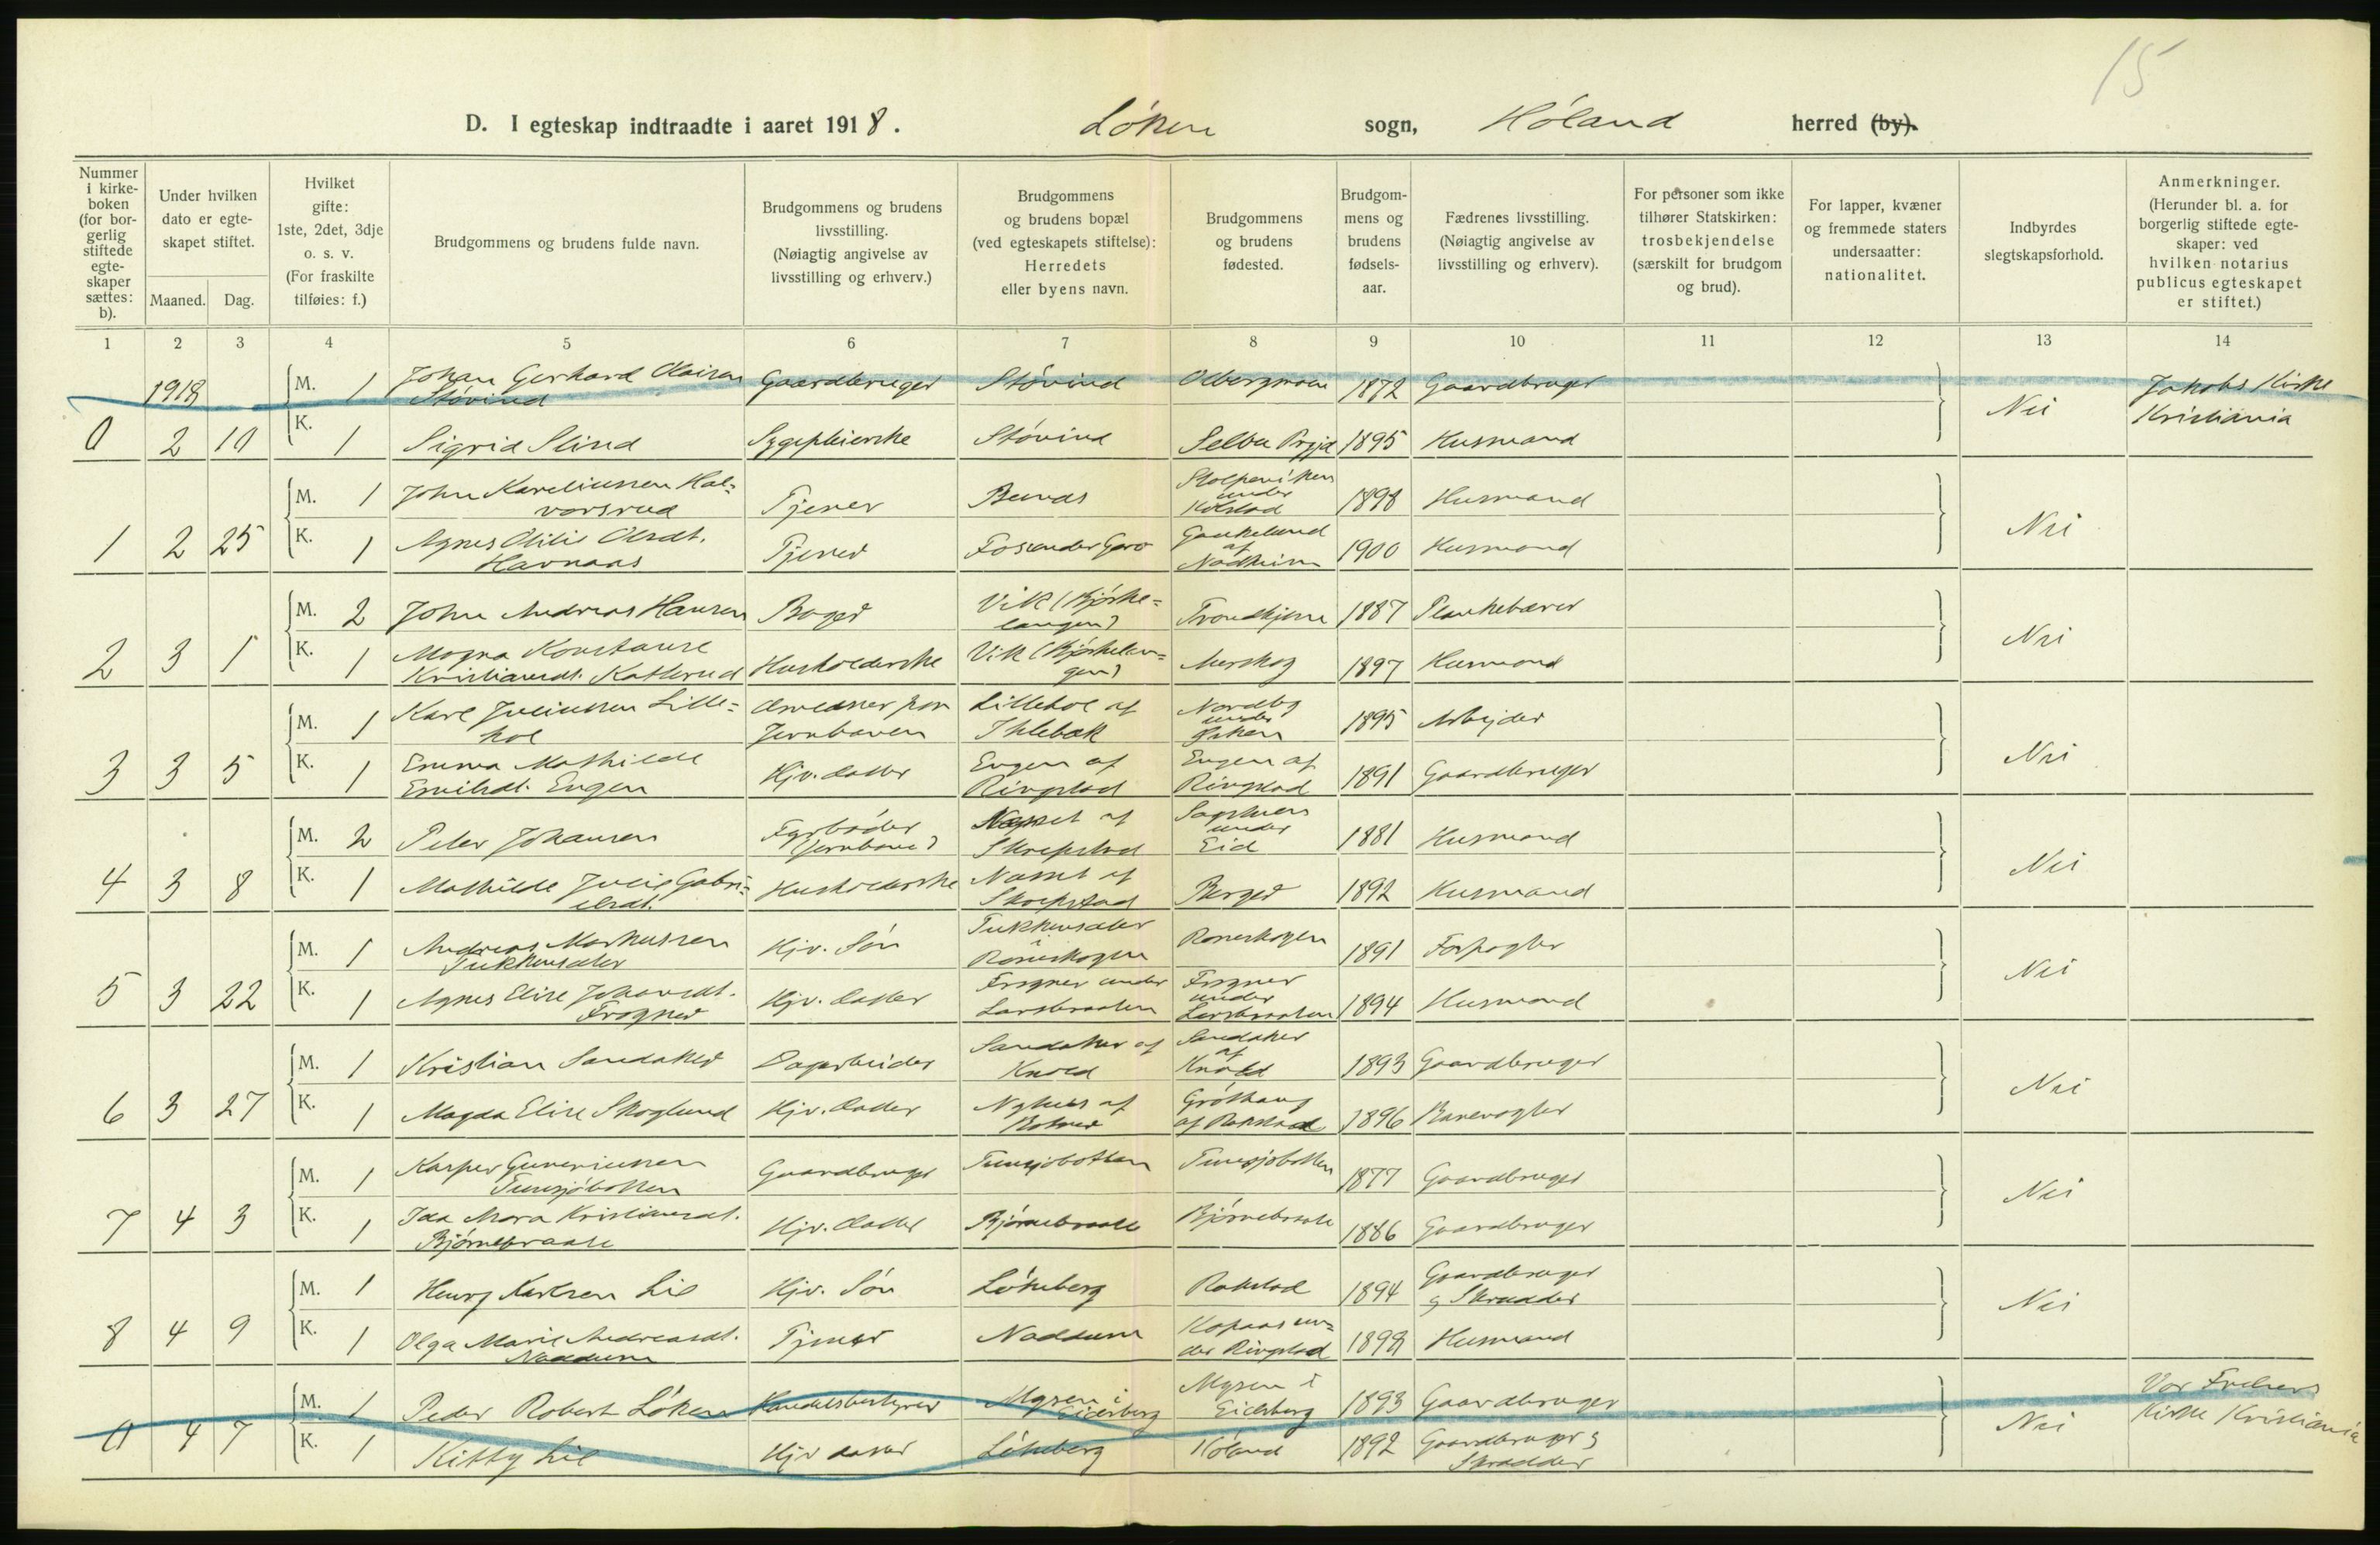 15
D. I egteskap indtraadte i aaret 1918. Löken sogn, Höland herred (by).
Nummer i kirke-boken (for bor-gerlig stiftede egte-skaper sættes: b).
Under hvilken dato er egte-skapet stiftet.
Maaned. Dag.
Hvilket gifte: 1ste, 2det, 3dje o. s. v. (For fraskilte tilføies: f.)
Brudgommens og brudens fulde navn.
Brudgommens og brudens livsstilling. (Nøiagtig angivelse av livsstilling og erhverv.)
Brudgommens og brudens bopæl (ved egteskapets stiftelse): Herredets eller byens navn.
Brudgommens og brudens fødested.
Brudgom-mens og brudens fødsels-aar.
Fædrenes livsstilling. (Nøiagtig angivelse av livsstilling og erhverv).
For personer som ikke tilhører Statskirken: trosbekjendelse (særskilt for brudgom og brud).
For lapper, kvæner og fremmede staters undersaatter: nationalitet.
Indbyrdes slegtskapsforhold.
Anmerkninger. (Herunder bl. a. for borgerlig stiftede egte-skaper: ved hvilken notarius publicus egteskapet er stiftet.)
1 2 3 4 5 6 7 8 9 10 11 12 13 14
1918 M. 1 Johan Gerhard Olaisen Stövind Gaardbruger Stövind 1872 Gaardbruger Jakobs Kirke
0 2 10 K. 1 Sigrid Slind Sygepleierske Stövind Selbu Prgjd 1895 Husmand Nei Kristiania
M. 1 John Kareliussen Hal-vorsrud Tjener Bunds under Kolstad 1898 Husmand
1 2 25 K. 1 Agnes Otilie Olsdt. Havnaas Tjener af 1900 Husmand Nei
M. 2 John Andreas Hansen Bager Vik (Björke-langen) Trondhjem 1887 Plankebærer
2 3 1 K. 1 Magna Konstanse Kristiansdt. Katterud Husholderske Vik (Björkelan-gen) Aurskog 1897 Husmand Nei
M. 1 Karl Juliussen Lille-hol Jernbanen Lillehol af Ihlebæk Nordby under 1895 Arbejder
3 3 5 K. 1 Emma Mathilde Emilsdt. Engen Hjv. datter Engen af Ringstad Engen af Ringstad 1891 Gaardbruger Nei
M. 2 Peter Johansen Fyrböder (Jernbane) Næsset af Skrepstad Sagstuen under Eid 1881 Husmand
4 3 8 K. 1 Mathilde Julie Gabri-elsdt. Husholderske Næsset af Skrepstad Berger 1892 Husmand Nei
M. 1 Andreas Markussen Tukkensæter Hjv. Sön Tukkensæter i Römskogen Römskogen 1891 Forpagter
5 3 22 K. 1 Agnes Elise Johansdt. Frogner Hjv. datter Frogner under Larsbraaten Frogner under Larsbraaten 1894 Husmand Nei
M. 1 Kristian Sandaker Dagarbeider Sandaker af Knold Sandaker af Knold 1893 Gaardbruger
6 3 27 K. 1 Magda Elise Skoglund Hjv. datter Nyhus af Botner Gröthaug af Rakstad 1896 Banevogter Nei
M. 1 Kasper Guneriussen Tunsjöbotten Gaardbruger Tunsjöbotten Tunsjöbotten 1877 Gaardbruger
7 4 3 K. 1 Ida Mara Kristiansdt. Björnebraate Hjv. datter Björnebraate Björnebraate 1886 Gaardbruger Nei
M. 1 Henry Karlsen Lie Hjv. Sön Lökeberg Rakstad 1894 Gaardbruger og Skrædder
8 4 9 K. 1 Olga Marie Andreasdt. Naddum Tjener Naddum Kopaas un-der Ringstad 1898 Husmand Nei
M. 1 Peder Robert Löken Handelsbestyrer Mysen i Eidsberg Mysen i Eidsberg 1893 Gaardbruger Vor Frelsers
0 4 7 K. 1 Kitty Lie Hjv datter Lökeberg Höland 1892 Gaardbruger og Skrædder Nei Kirke Kristiania